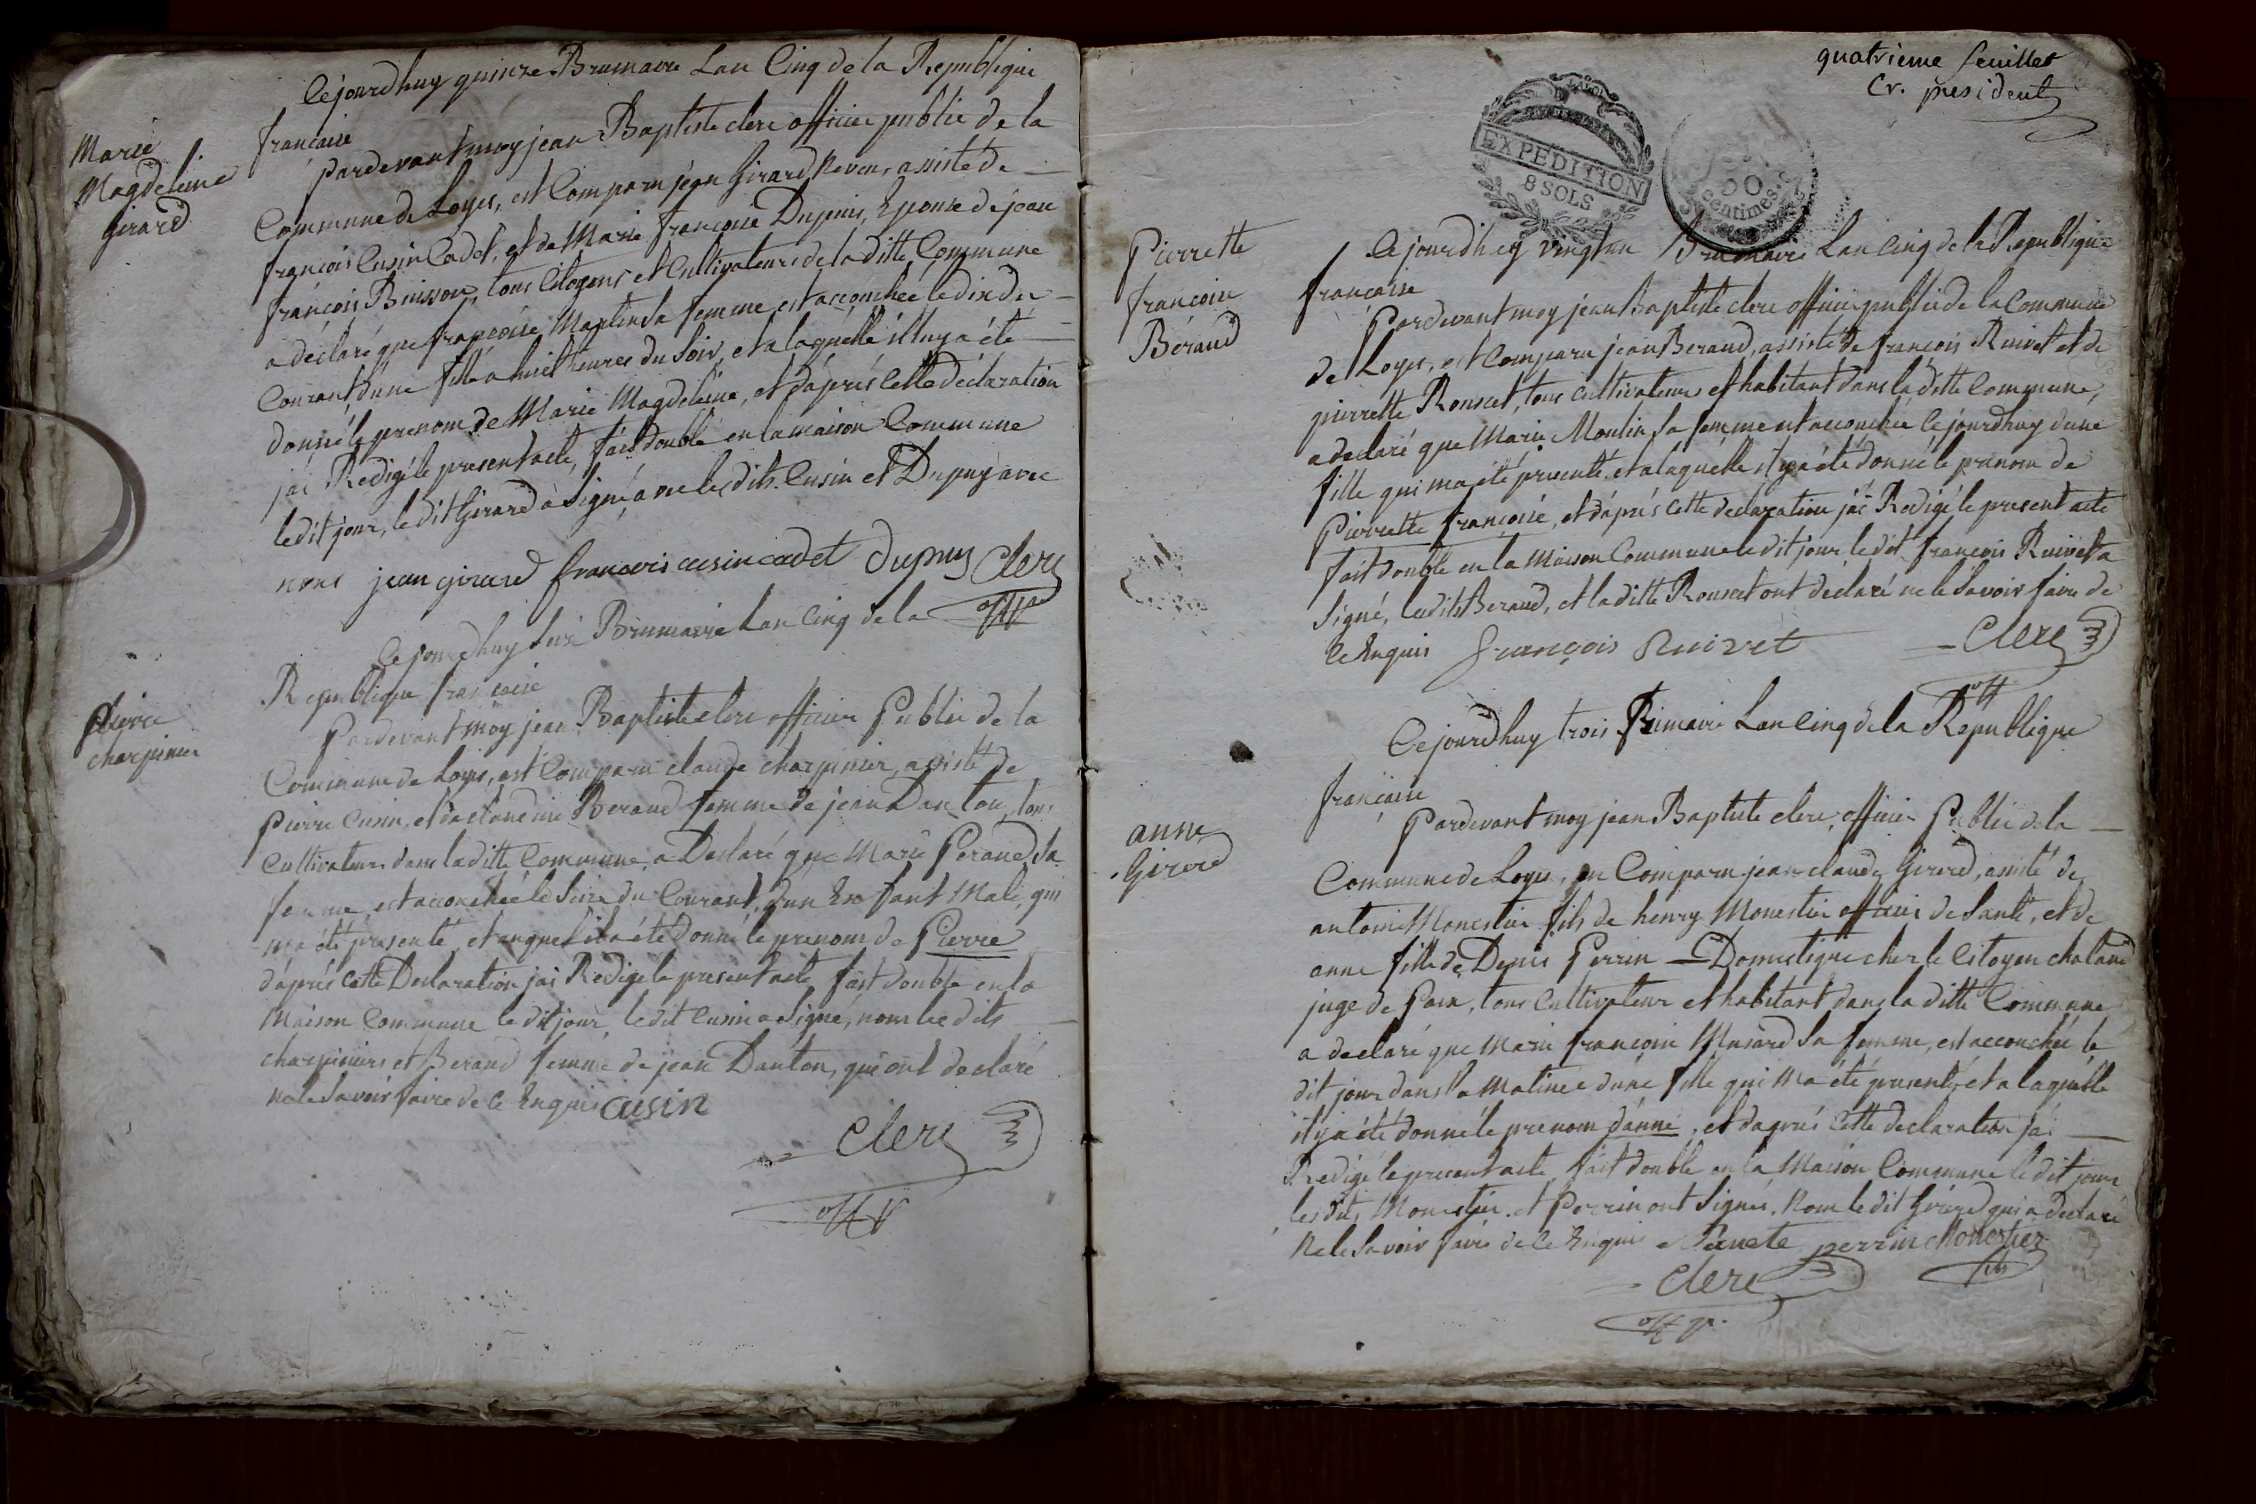 Cejourdhuy quinze Brumaire Lan Cinq de la Republique
francaise
Marie
Magdeleine
Girard
pardevant moy jean Baptiste clerc officier public de la
Commune de Loyes, est Comparu jean Girard Neveu, assisté de
françois Cusin Cadet, et de Marie françoise Dupuis, Epouse de jean
françois Buisson, tous Citoyens et Cultivateurs de la ditte Commune
a déclaré que françoise Martin sa femme est accouchée le dix du
Courant dune fille a huit heures du Soir, et a laquelle il luy a été
donné le prenom de Marie Magdeleine, et d'aprés Cette déclaration
jai Redigé le present acte, fait double en la maison Commune
le dit jour, le dit Girard à Signé avec les dits Cusin et Dupuy avec
nous jean girard francois cusin cadet Dupuis Clerc
off p
Cejourdhuy Seize Brumaire Lan Cinq de la
Republique francaise
pierre
charpinier
Pardevant moy jean Baptiste clerc officier Public de la
Commune de Loyes, est Comparu claude charpinier, assisté de
Pierre Cusin, et de claudine Beraud femme de jean Danton, tous
Cultivateurs dans la ditte Commune, a Declaré que Marie Peraud sa
femme, est accouchée le Seize du Courant, d'un Enfant Male, qui
ma été presenté, et auquel il a été donné le prenom de Pierre
d'aprés cette Declaration jai Redigé le present acte fait double en la
Maison Commune le dit jour, le dit Cusin a Signé, non les dits
charpiniers et Beraud femme de jean Danton, qui ont declaré
ne le Savoir faire de ce Enquis cusin
Clerc
off p
quatrieme feuillet
Cr. president
LA LOI
EXPEDITION
8 SOLS
50
Centimes
Pierrette
françoise
Béraud
Cejourdhuy vingt un Brumaire Lan Cinq de la Republique
française
Pardevant moy jean Baptiste clerc officier public de la Commune
de Loyes, est Comparu jean Beraud, assisté de françois Ruivet et de
pierrette Rousset, tous Cultivateurs et habitant dans la ditte Commune,
a declaré que Marie Moulin sa femme est accouchée Cejourdhuy dune
fille qui ma été presenté, et a laquelle il y a été donné le prenom de
Pierrette françoise, et d'aprés cette declaration jai Redigé le present acte
fait double en la Maison Commune le dit jour le dit françois Ruivet a
Signé, Ledit Beraud, et la ditte Rousset ont déclaré ne le Savoir faire de
Ce Enquis françois Ruivet Clerc
off
Cejourdhuy trois Frimaire Lan Cinq de la Republique
française
anne
Girerd
Pardevant moy jean Baptiste clerc officier Public de la
Commune de Loyes, en Comparu jean claude Girerd, assisté de
antoine Monestier fils de henry Monestier officier de Santé, et de
anne fille de Denis Perrin Domestique chez le Citoyen chaland
juge de Paix, tous Cultivateur et habitant dans la ditte Commune
a declaré que Marie françoise Musard sa femme, est accouchée le
dit jour dans la Matinee dune fille qui Ma été presenté, et a laquelle
il y a été donné le prenom d'anne, et d'aprés cette declaration jai
Redigé le present acte fait double en la Maison Commune le dit jour
les dits Monestier et Perrin ont Signés, Non le dit Girerd qui a Declaré
Ne le Savoir faire de Ce Enquis perrin Monestier
clerc
off p.